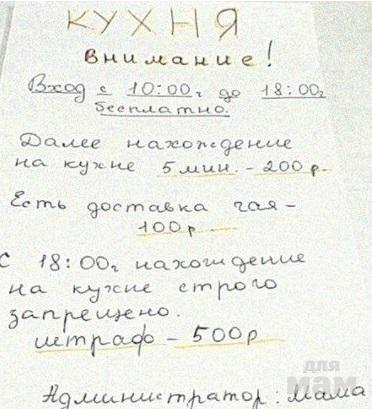 КУХНЯ
внимание!
Вход с 10:00ч до 18:00ч
бесплатно.
Далее нахождение
на кухне 5 мин. - 200 р.
Есть доставка чая -
100 р
С 18:00ч нахождение
на кухне строго
запрещено.
штраф - 500р
для
мам
Администратор: Мама